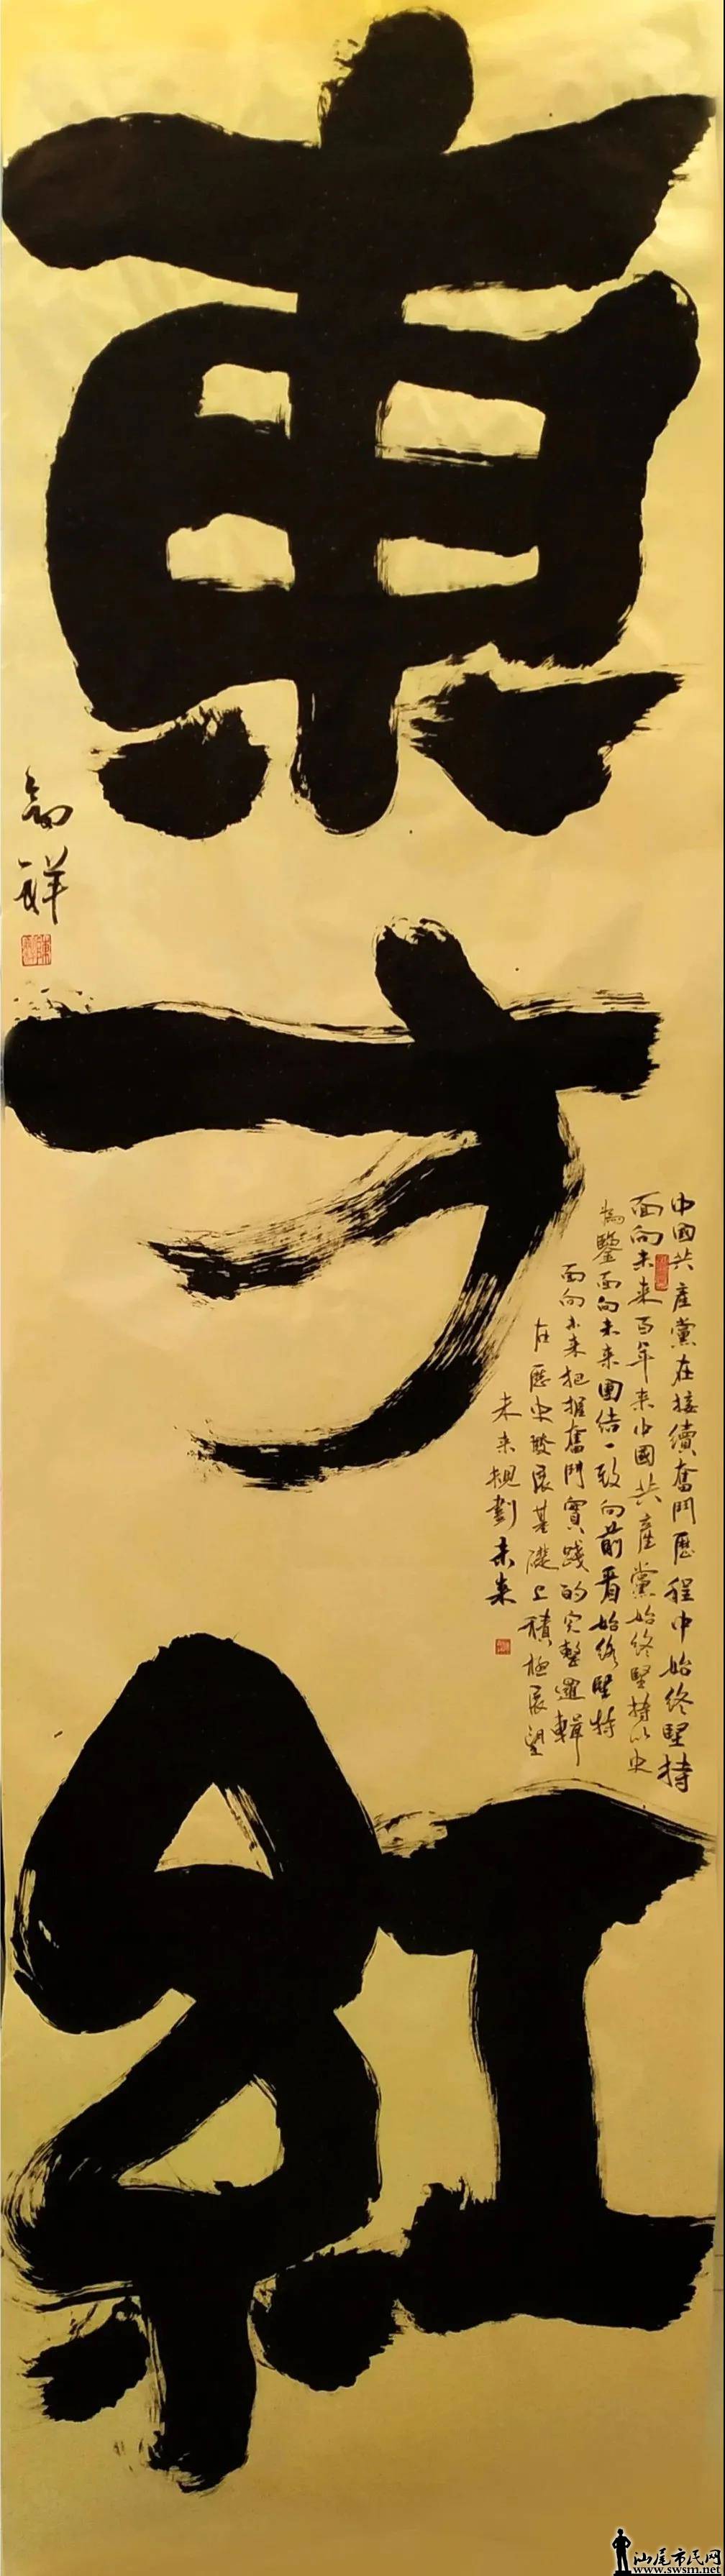 東方紅
中國共產黨在接續奮鬥歷程中始終堅持
面向未来百年来中國共產黨始終堅持以史
為鑒面向未来團结一致向前看始終堅持
面向未来把握奮鬥實踐的完整邏輯
在歷史發展基礎上積極展望
未来規劃未来
祥
汕尾市民网
www.swsm.net